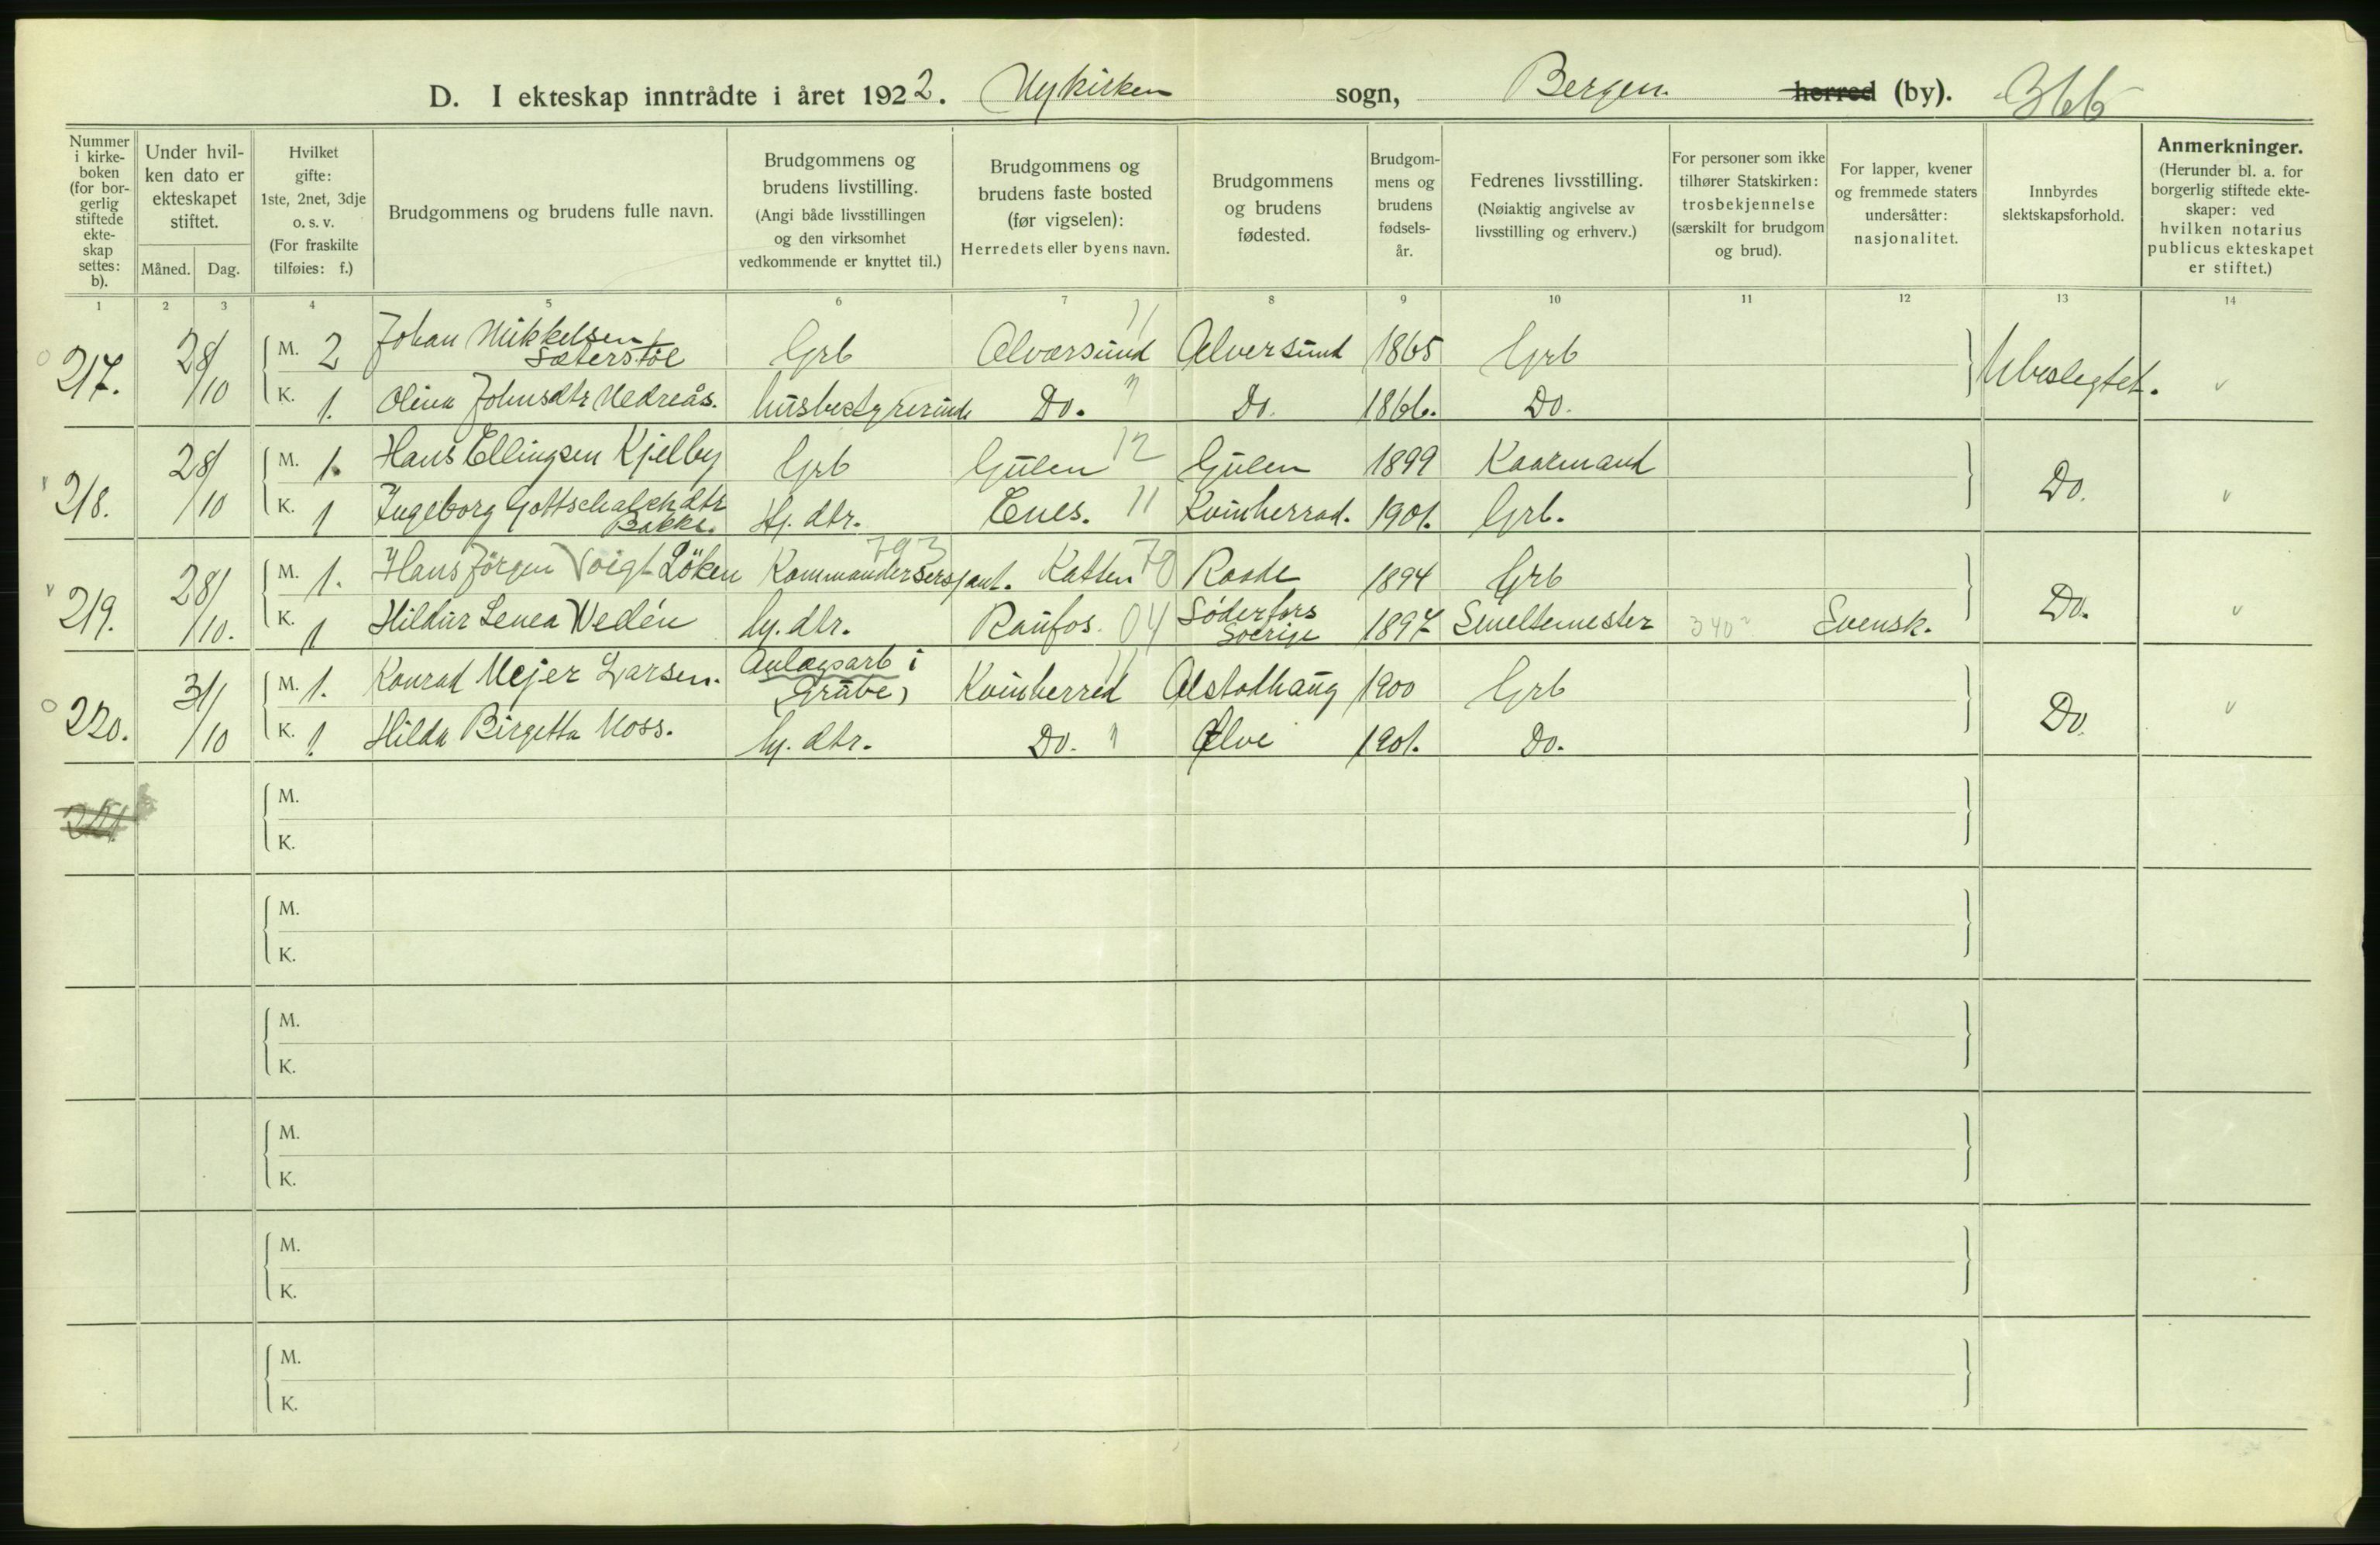 D. I ekteskap inntrådte i året 1922. Nykirken sogn, Bergen herred (by). 366
Nummer i kirkeboken (for borgerlig stiftede ekteskap settes: b).
Under hvilken dato er ekteskapet stiftet.
Måned. Dag.
Hvilket gifte: 1ste, 2net, 3dje o. s. v. (For fraskilte tilføies: f.)
Brudgommens og brudens fulle navn.
Brudgommens og brudens livstilling. (Angi både livsstillingen og den virksomhet vedkommende er knyttet til.)
Brudgommens og brudens faste bosted (før vigselen): Herredets eller byens navn.
Brudgommens og brudens fødested.
Brudgommens og brudens fødselsår.
Fedrenes livsstilling. (Nøiaktig angivelse av livsstilling og erhverv.)
For personer som ikke tilhører Statskirken: trosbekjennelse (særskilt for brudgom og brud).
For lapper, kvener og fremmede staters undersåtter: nasjonalitet.
Innbyrdes slektskapsforhold.
Anmerkninger. (Herunder bl. a. for borgerlig stiftede ekteskaper: ved hvilken notarius publicus ekteskapet er stiftet.)
1 2 3 4 5 6 7 8 9 10 11 12 13 14
217. 28/10 M. 2 Johan Mikkelsen Sæterstöl Grb Alværsund 11 Alversund 1865 Grb Ubeslegtet. "
K. 1. Olina Johnsdtr Nedreås. husbestyrerinde Do. " Do. 1866. Do.
218. 28/10 M. 1. Hans Ellingsen Kjelby Grb Gulen 12 Gulen 1899 Kaarmand Do. "
K. 1 Ingeborg Gottschalchdtr Bakke. Hj. dtr. Enes. 11 Kvinherrad. 1901. Grb.
219. 28/10. M. 1. Hans Jörgen Voigt Löken Kommandersersjant. 793 Katten 70 Raade 1894 Grb Do. "
K. 1 Hildur Lenea Wedén hj. dtr. Raufos. 04 Söderfors Sverige 1897 Smeltemester 340 Svensk.
220. 31/10 M. 1. Konrad Mejer Larsen. Anlægsarb i (Grube) Kvinherred 11 Alstadhaug 1900 Grb Do. "
K. 1. Hilda Birgetta Moss. hj. dtr. Do. " Ølve 1901. Do.
221.
M.
K.
M.
K.
M.
K.
M.
K.
M.
K.
M.
K.